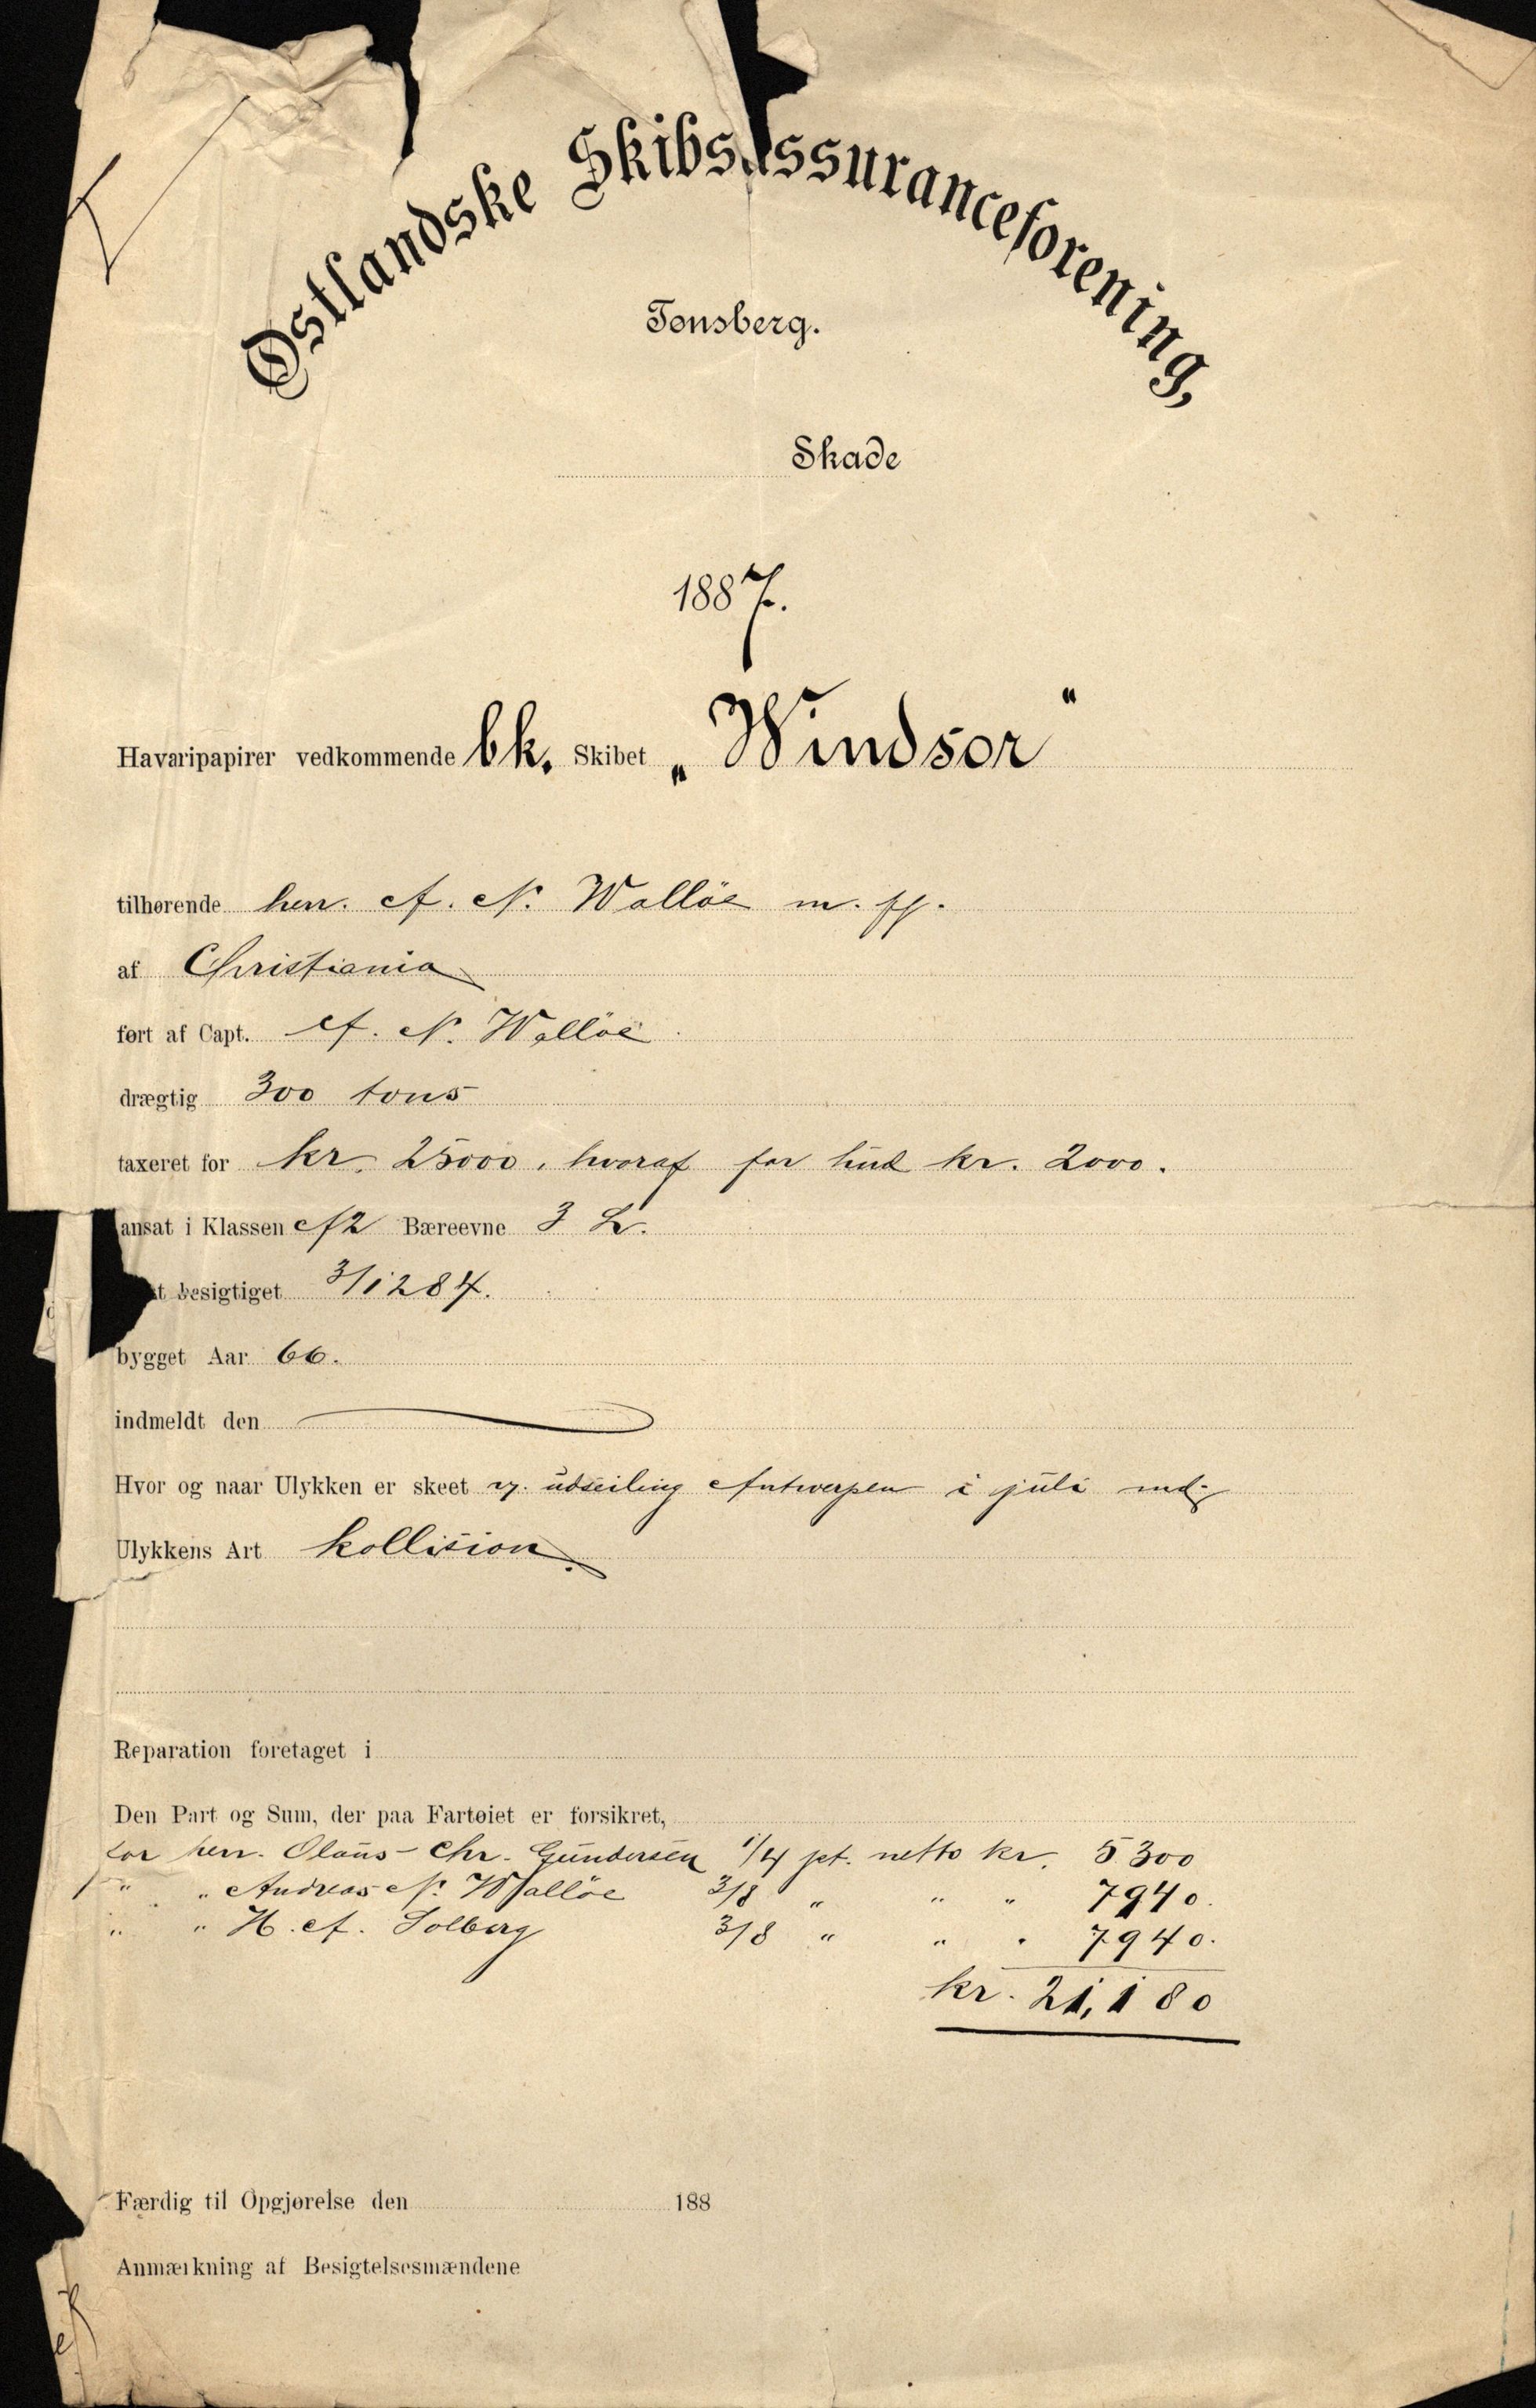 Østlandske Skibsassuranceforening,
Tønsberg.
Skade
1887.
Havaripapirer vedkommende bk. Skibet „Windsor"
tilhørende herr. A. N. Wallöe m. fl.
af Christiania
ført af Capt. A. N. Wallöe
drægtig 300 tons
taxeret for kr. 25000, hvoraf for hud kr. 2000.
ansat i Klassen A2 Bæreevne 3 L.
besigtiget 3/12 84.
bygget Aar 66.
indmeldt den
Hvor og naar Ulykken er skeet v. udseiling Antwerpen i juli md.
Ulykkens Art kollision.
Reparation foretaget i
Den Part og Sum, der paa Fartøiet er forsikret,
for herr. Olaus Chr. Gundersen 1/4 pt. netto kr. 5300
" " Andreas N. Wallöe 3/8 " " " 7940.
" " H. A. Solberg 3/8 " " " 7940.
kr. 21,180
Færdig til Opgjørelse den 188
Anmærkning af Besigtelsesmændene